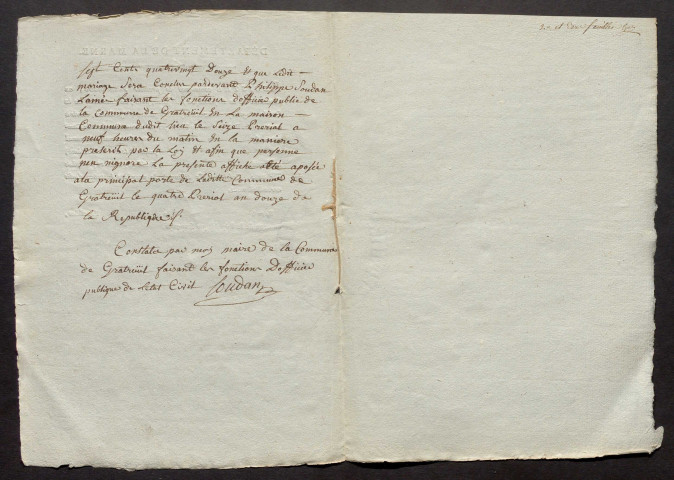 2e et dernier feuillet
DEPARTEMENT DE LA MARNE
Sept Cents quatrevingt Douze Et que Ledit
mariage Sera Conclue pardevant Philippe Soudan
Lainée faisant les fonctions Doffice public de
la Commune de Gratreüil En La maison
Commune dudit lieu le Seize Prerial a
neuf heures du matin En la maniere
prescrit par la Loy Et afin que personne
nen nignore La presente affiche a été aposée
ala principal porte de Leditte Commune de
Gratreüil le quatre Prerial an douze de
la Republique /.
Constate par moy maire de la Commune
de Gratreüil faisant les fonctions Dofficie
publique de Letat Civil Soudan